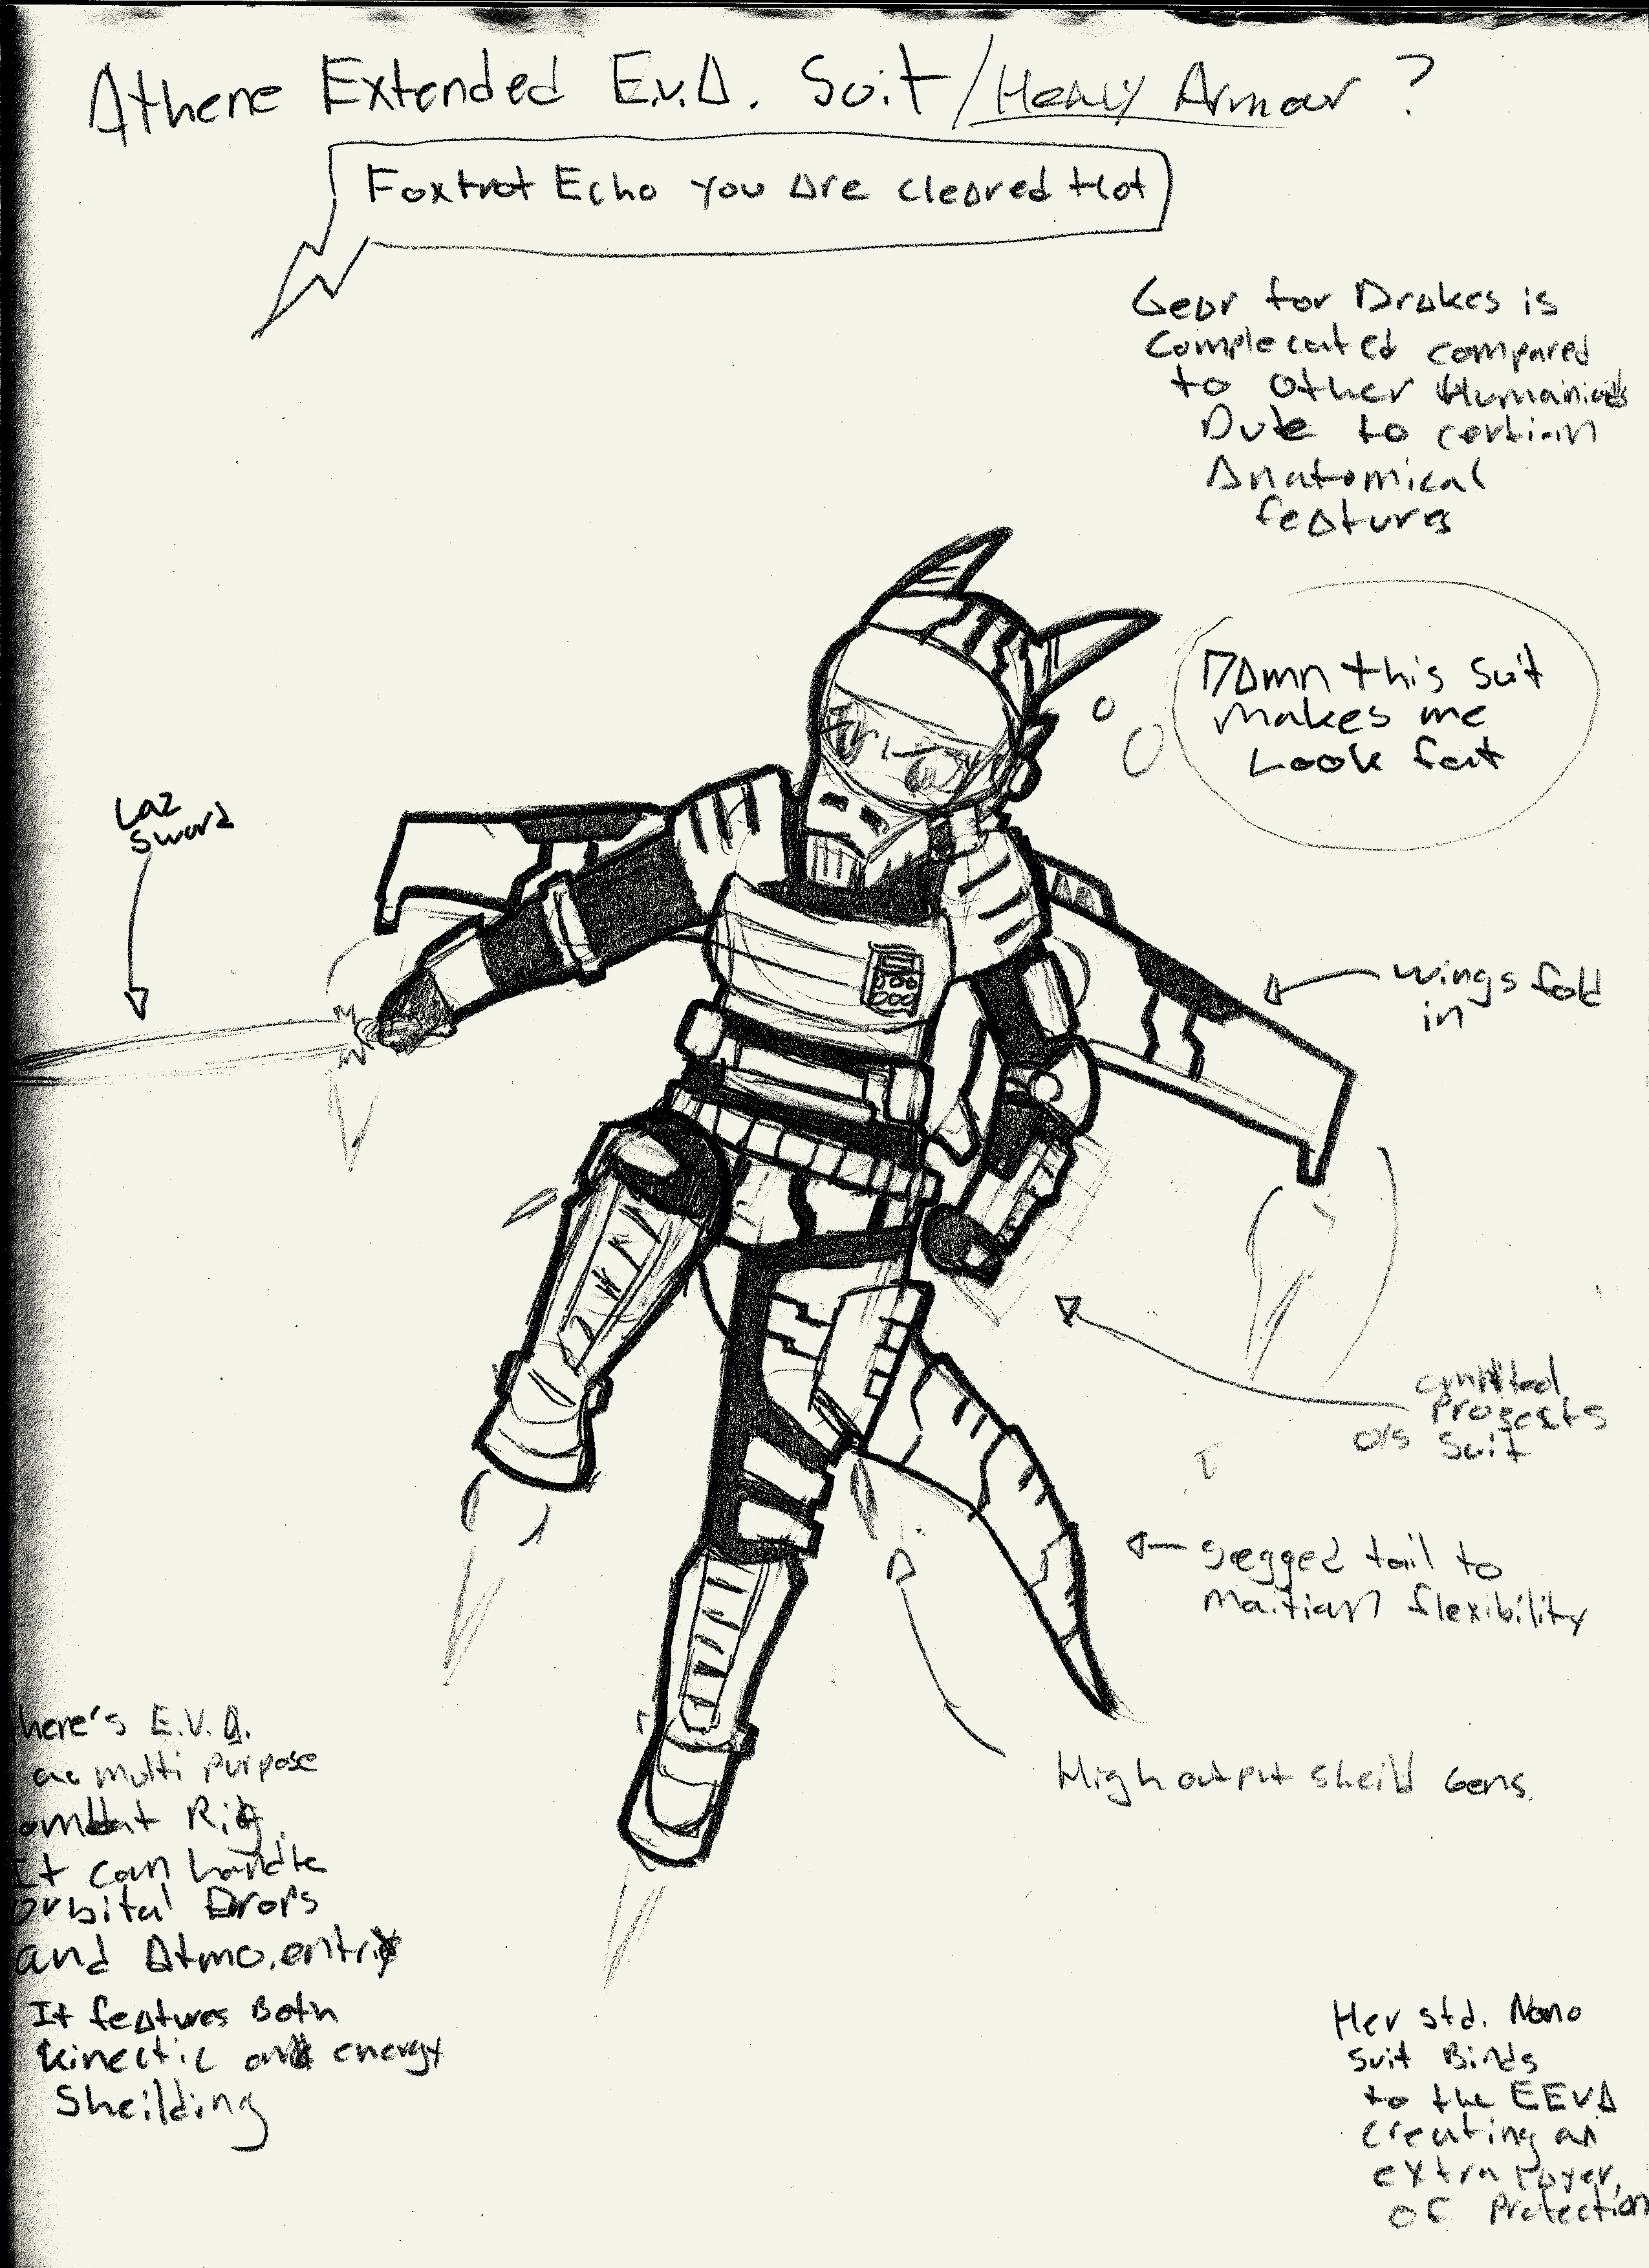 Athene Extended E.v.A. Suit/Heavy Armour?
Foxtrot Echo you are cleared Hot
Gear for Drakes is
Complecated compared
to Other Humaniods
Dute to certian
Anatomical
features
Damn this suit
makes me
Look fat
Laz
Sword
wings fold
in
O/S
Suit
segged tail to
maitian flexibility
High output sheild Gens.
here's E.V.A.
multi purpose
ombat Rig.
It can handle
Orbital Drops
and Atmo.entry
It features Both
kinectic and energy
Sheilding
Her std. Nano
suit Binds
to the EEVA
creating an
extra layer,
of Protection